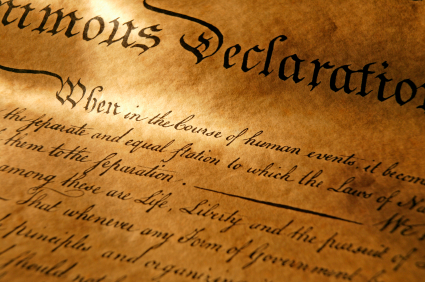 nimous Declaration
When in the Course of human events, it becom
the separate and equal station to which the Laws of Na
them to the separation. — We
among these are Life, Liberty and the pursuit of
— That whenever any Form of Government
principles and organizin
should not